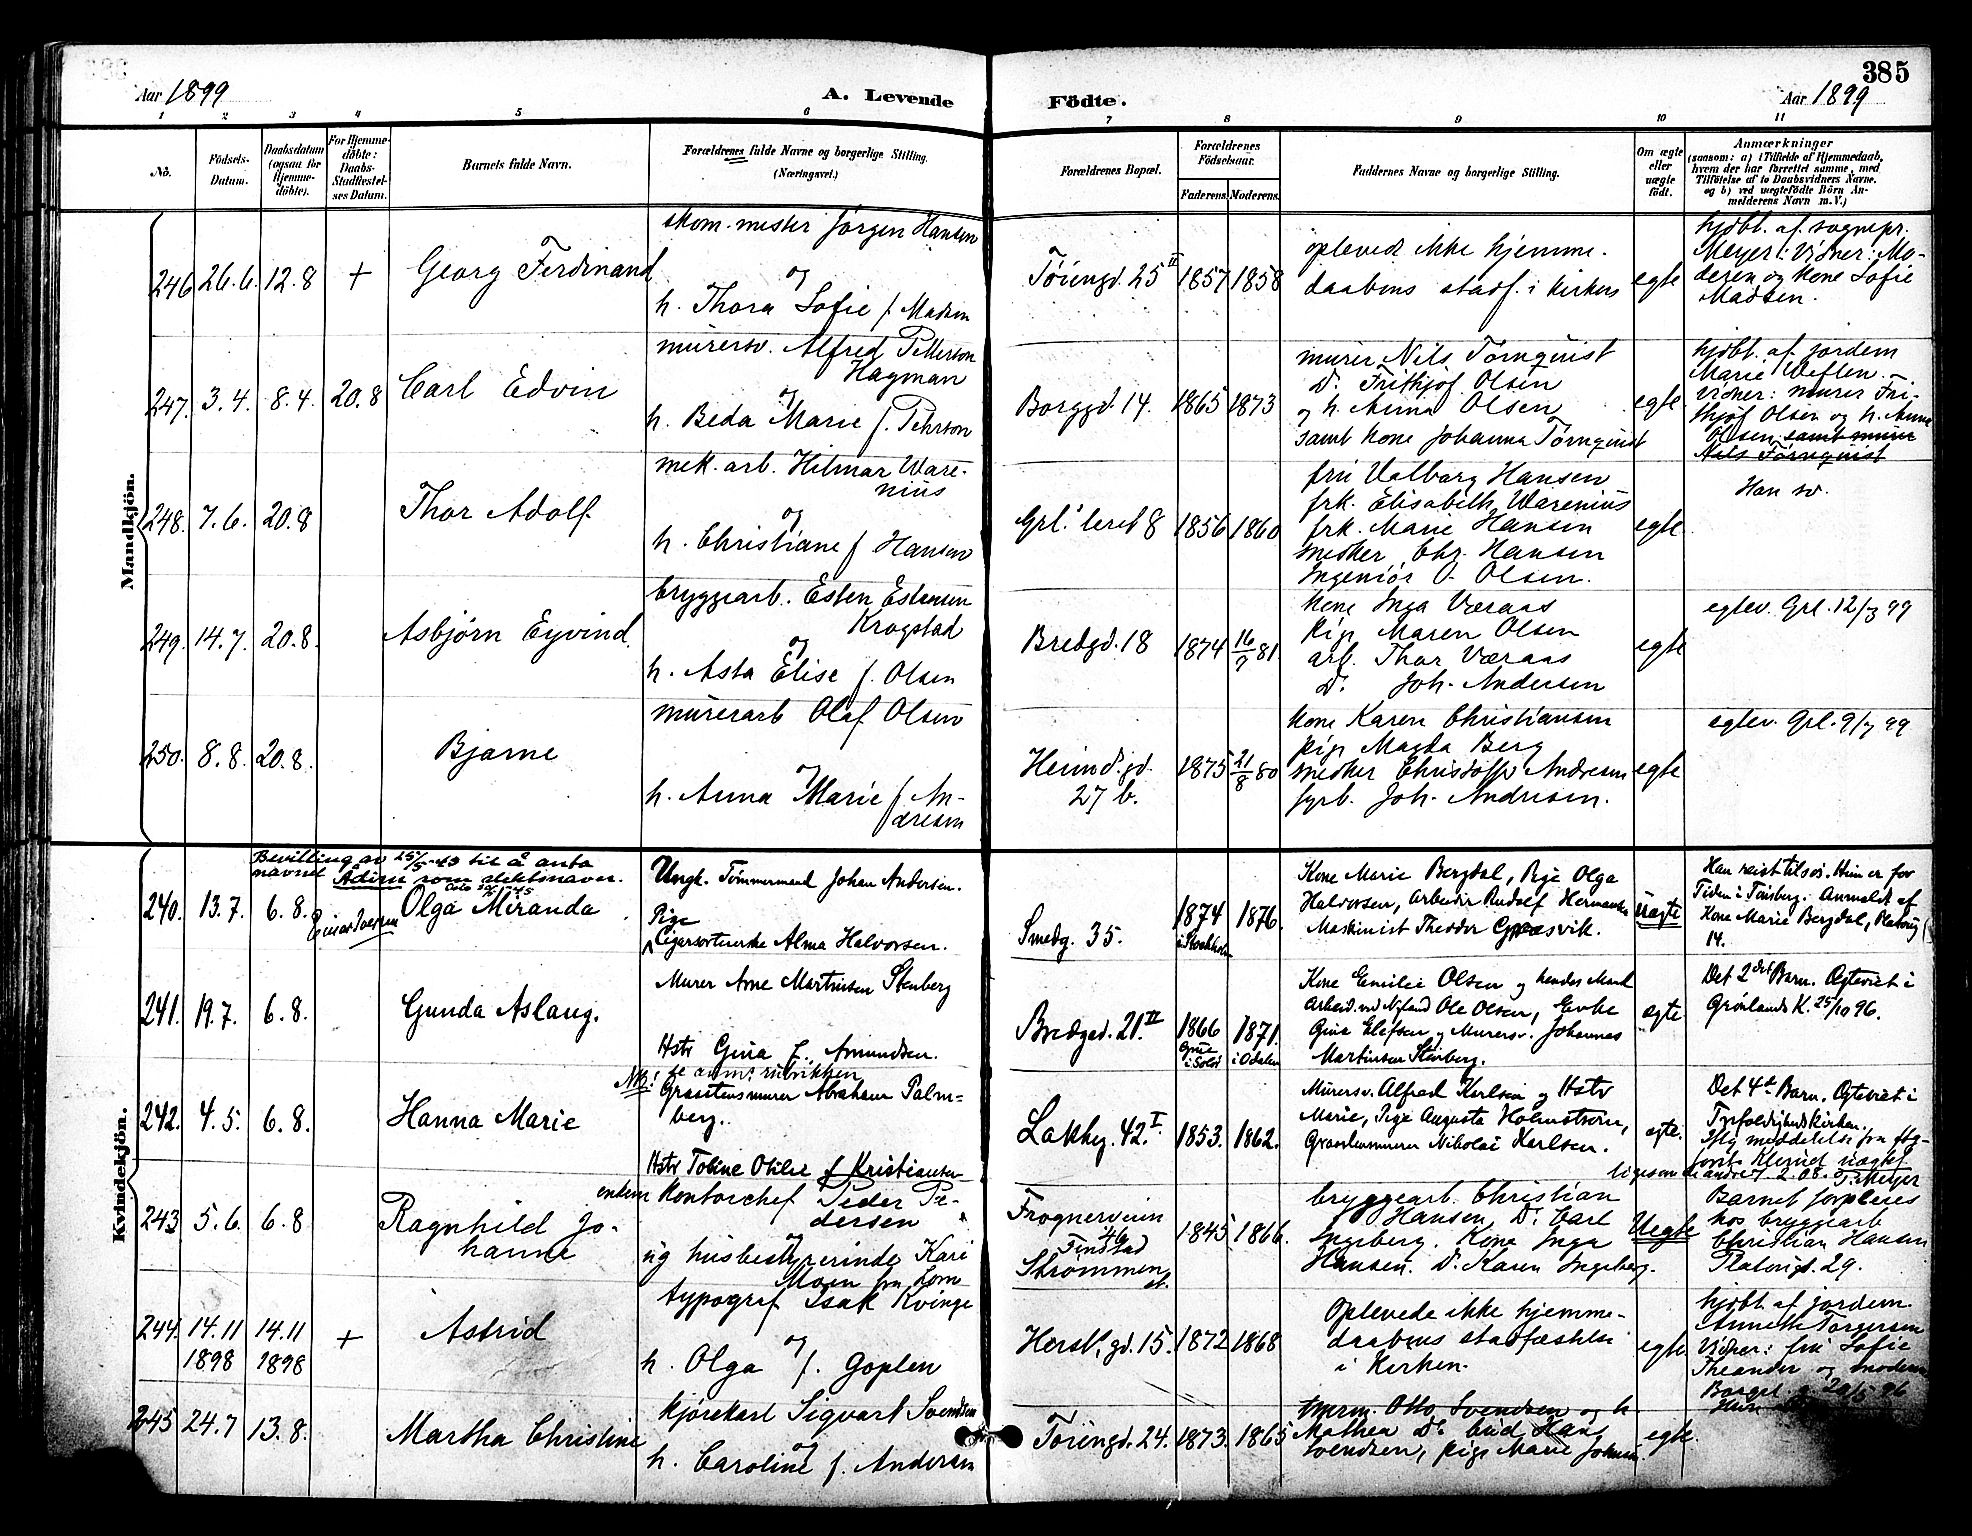 385
Aar 1899
A. Levende
Födte.
Aar 1899
1
2
3
4
5
6
7
8
9
10
11
No.
Födsels-
Datum.
Daabsdatum
(ogsaa for
Hjemme-
döbte).
For Hjemme-
döbte:
Daabs-
Stadfæstel-
ses Datum.
Barnets fulde Navn.
Forældrenes fulde Navne og borgerlige Stilling.
(Næringsvei.)
Forældrenes Bopæl.
Forældrenes
Födselsaar.
Faderens.
Moderens.
Faddernes Navne og borgerlige Stilling.
Om ægte
eller
uægte
födt.
Anmærkninger
(saasom: a) i Tilfælde af Hjemmedaab,
hvem der har forrettet samme, med
Tilföielse af to Daabsvidners Navne.
og b) ved uægtefödte Börn An-
melderens Navn m. V.)
Mandkjön.
246
26.6.
12.8
+
Georg Ferdinand
skom. mester Jørgen Hansen
og
h. Thora Sofie f. Madsen
Töiengd. 25 II
1857
1858
oplevede ikke hjemme.
daabens stadf. i kirken
egte
hjdbt. af sognepr.
Meyer: Vidner: Mo-
deren og kone Sofie
Madsen.
247.
3.4.
8.4.
20.8
Carl Edvin
murersv. Alfred Petterson
Hagman
og
h. Beda Marie f. Pehrson
Borggd. 14.
1865
1873
murer Nils Törnquist
D. Frithjof Olsen
og h. Anna Olsen
samt kone Johanna Törnquist
egte
hjdbt. af jordem
Marie Veflen.
Vidner: murer Fri-
thjof Olsen og h. Anna
Olsen samt murer
Nils Törnquist
248.
7.6.
20.8
Thor Adolf
mek. arb. Hilmar Ware-
nius
og
h. Christiane f. Hansen
Grl. leret 8
1856
1860
fru Valborg Hansen
frk. Elisabeth Warenius
frk. Marie Hansen
snedker Chr. Hansen
Ingeniör O. Olsen.
egte
Han sv.
249.
14.7.
20.8.
Asbjörn Eyvind.
bryggearb. Esten Estensen
Krogstad
og
h. Asta Elise f. Olsen
Bredgd. 18
1874
16/7 81.
kone Inga Væraas
pige Maren Olsen
arb. Thor Væraas
D. Joh. Andersen
egte
egtev. Grl. 12/3 99
250.
8.8.
20.8.
Bjarne
murerarb Olaf Olsen
og
h. Anna Marie f. An-
dresen
Heimd. gd.
27 b.
1875
21/8 80
kone Karen Christiansen
pige Magda Berg
snedker Christoffer Andresen
fyrb. Joh. Andresen.
egte
egtev. Grl. 9/7 99
Kvindekjön.
Bevilling av 25/5-43 til å anta
navnet Ådine som slektsnavn.
240.
13.7.
6.8.
Olga Miranda
Ungk. Tömmermand Johan Andersen.
Pige
Cigarsorterske Alma Halvorsen.
Smedg. 35.
1874
i Stockholm
1876.
Kone Marie Bergdal, Pige Olga
Halvorsen, Arbeider Rudolf Hermansen
Maskinist Theodor Græsvik.
uægte
Han reist tilsös. Hun er for
Tiden i Tönsberg. Anmeldt af
Kone Marie Bergdal, Platoug
14.
241.
19.7.
6.8.
Gunda Aslaug.
Murer Arne Martinsen Stenberg
Hstr Gina f. Amundsen.
Bredgad. 21. II
1866
Grue
i Solör
1871.
i Odalen
Kone Emilie Olsen og hendes Mand
Arbeid. ved Nyland Ole Olsen, Enke
Gina Elefsen og Murersv. Johannes
Martinsen Stenberg.
ægte
Det 2det Barn. Ægteviet i
Grönlands K. 25/10 96.
242.
4.5.
6.8.
Hanna Marie
NB! se anm. rubrikken
Graastensmurer Abraham Palm-
berg.
Hstr Toline Otilie f. Kristiansen
Lakkeg. 42. I
1853.
1862.
Murersv. Alfred Karlsen og Hstr
Marie, Pige Augusta Holmström,
Graastensmurer Nikolai Karlsen.
ægte.
Det 4de Barn. Ægteviet i
Trefoldighedskirken.
243
5.6.
6.8
Ragnhild Jo-
hanne
enkem kontorchef Peder Pe-
dersen
og husbestyrerinde Kari
Moen
Frognerveien
46
Strömmen
st.
1845
1866.
bryggearb. Christian
Hansen. D. Carl
Ingeberg. Kone Inga
Hansen. D. Karen Ingeberg.
Uegte
Barnet forpleies
hos bryggearb
Christian Hansen
Platousgd. 29.
244.
14.11
1898
14.11
1898
+
Astrid
typograf Isak Kvinge
og
h. Olga f. Goplen
Hersl. gd. 15.
1872
1868
Oplevede ikke hjemme-
daabens stadfæstelse
i kirken.
egte
hjdbt af jordem.
Annette Torgersen
Vidner: fru Sofie
Theander og moderen
245
24.7
13.8.
Martha Christine
kjörekarl Sigvart Svendsen
og
h. Caroline f. Andersen
Töiengd. 24.
1873.
1865
tmrm. Otto Svendsen og h.
Mathea D. bud Hans
Svendsen, pige Marie Johnsen
egte.